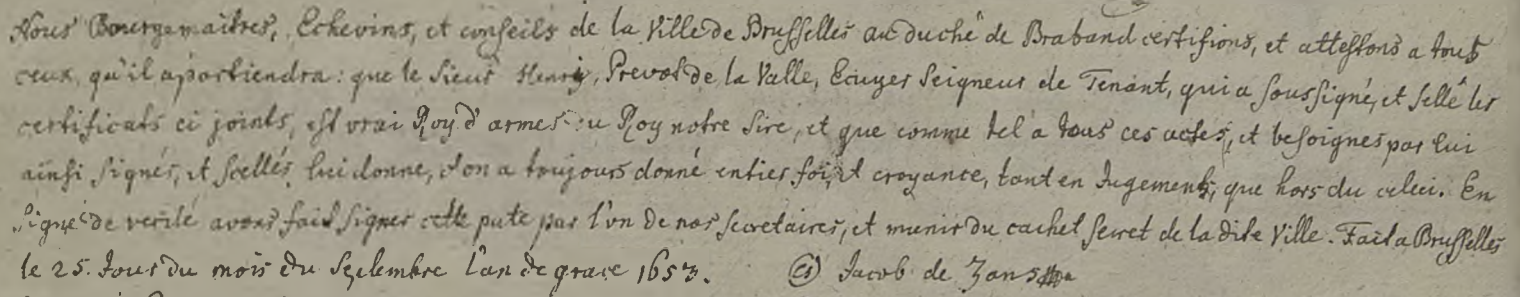 Nous Bourgemaitres, Echevins, et conseils de la Ville de Brusselles au duché de Braband certifions, et attestons a tous
ceux, qu'il apartiendra: que le Sieur Henry, Prevost de la Valle, Ecuyer Seigneur de Tenant, qui a soussigné, et sellé les
certificats ci joints, est vrai Roy d'armes du Roy notre Sire, et que comme tel a tous ces actes, et besoignes par lui
ainsi signés, et scellés lui donne, et on a toujours donné entier foi, et croyance, tant en Jugement, que hors du celui. En
signe de verité avons fait signer cette pnte par l'un de nos secretaires, et munir du cachet secret de la dite Ville. Fait a Brusselles
le 25. Jour du mois du Septembre l'an de grace 1653. (s) Jacob de